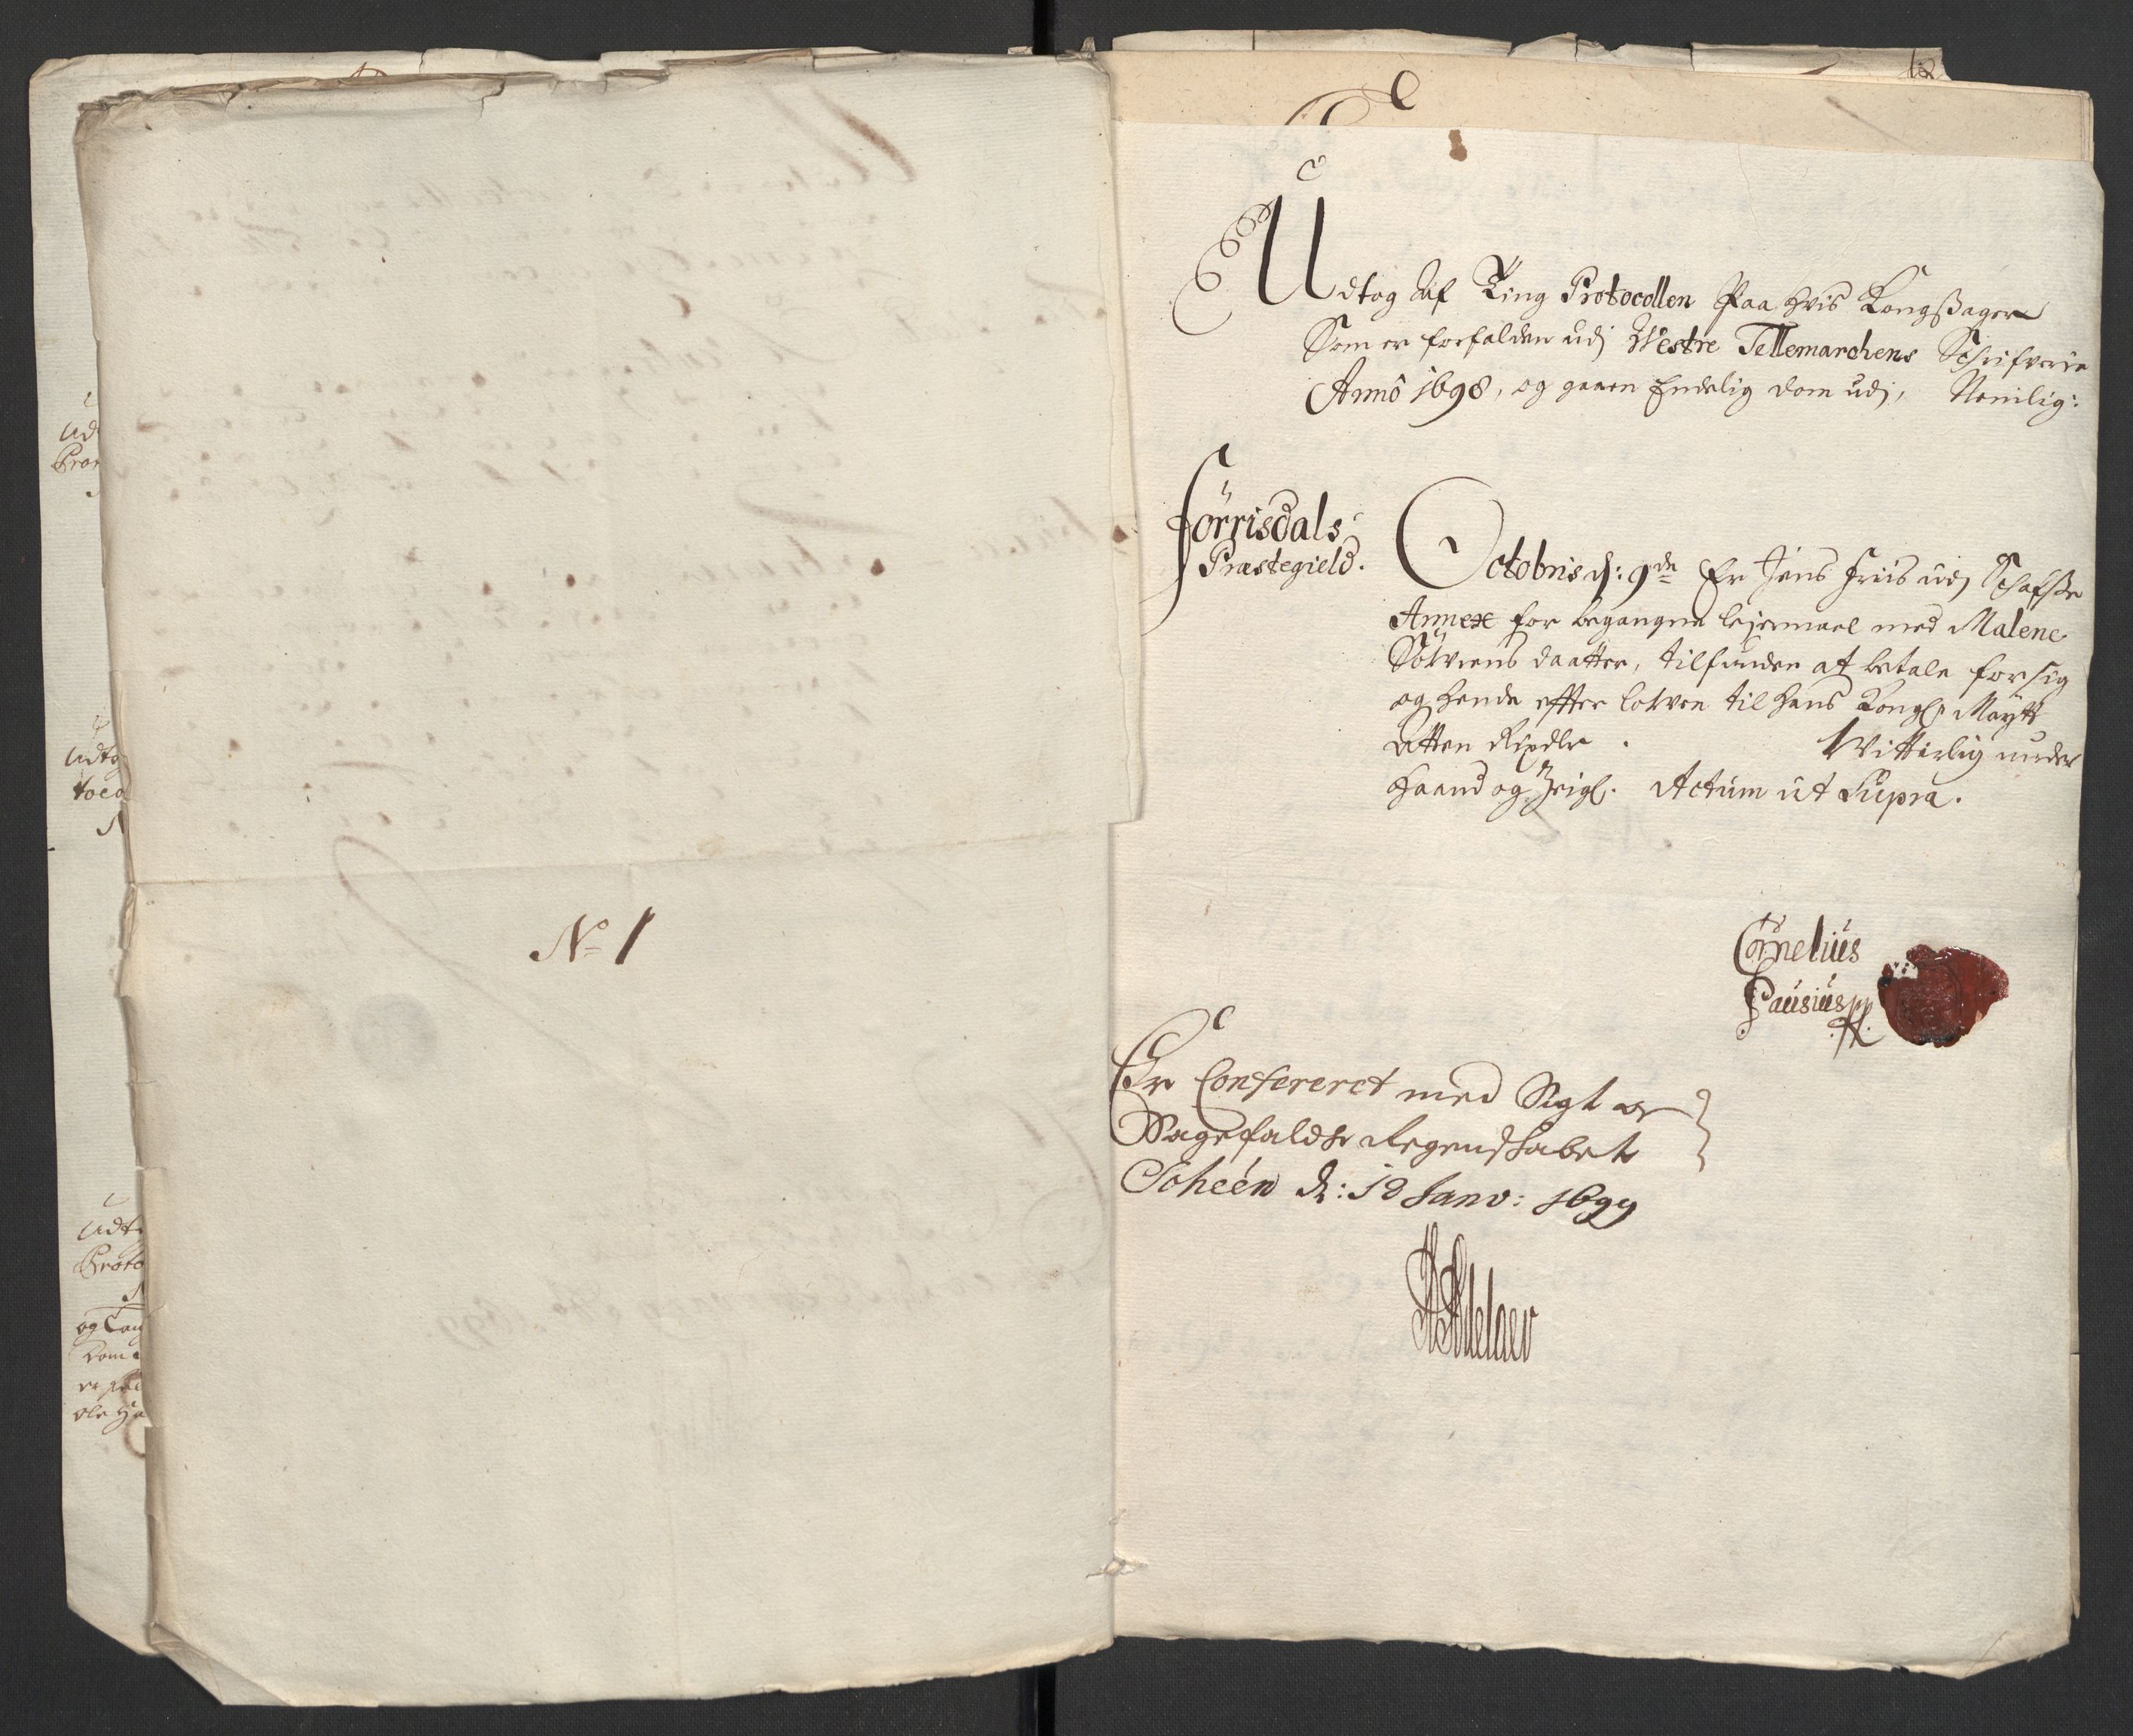 No 1
Udtog Af Ting Protocollen Paa hvis Kongsager
Som er forfalden udj Westre Tellemarchens Schrifverie
Anno 1698, og gaaen Endelig dom udj, Nemlig:
Förrisdals
Præstegield.
Octobris d: 9de Er Jens Friis udj Schafse
Annex for begangne leiermael med Malene
Sölvrens daatter, tilfunden at betale for sig
og hende effter lowen til Hans Kongl: Maytt
Otten Rixdlr. Witterlig under
Haand og Zeigl. Actum ut Supra.
Cornelius
Pausius
Er Confereret med Sigt og
Sagefalds Regenskabet
Scheen d: 12 Janv: 1699
Adelaer
Udt
Udto
toco
Udt
Proto
og
dom